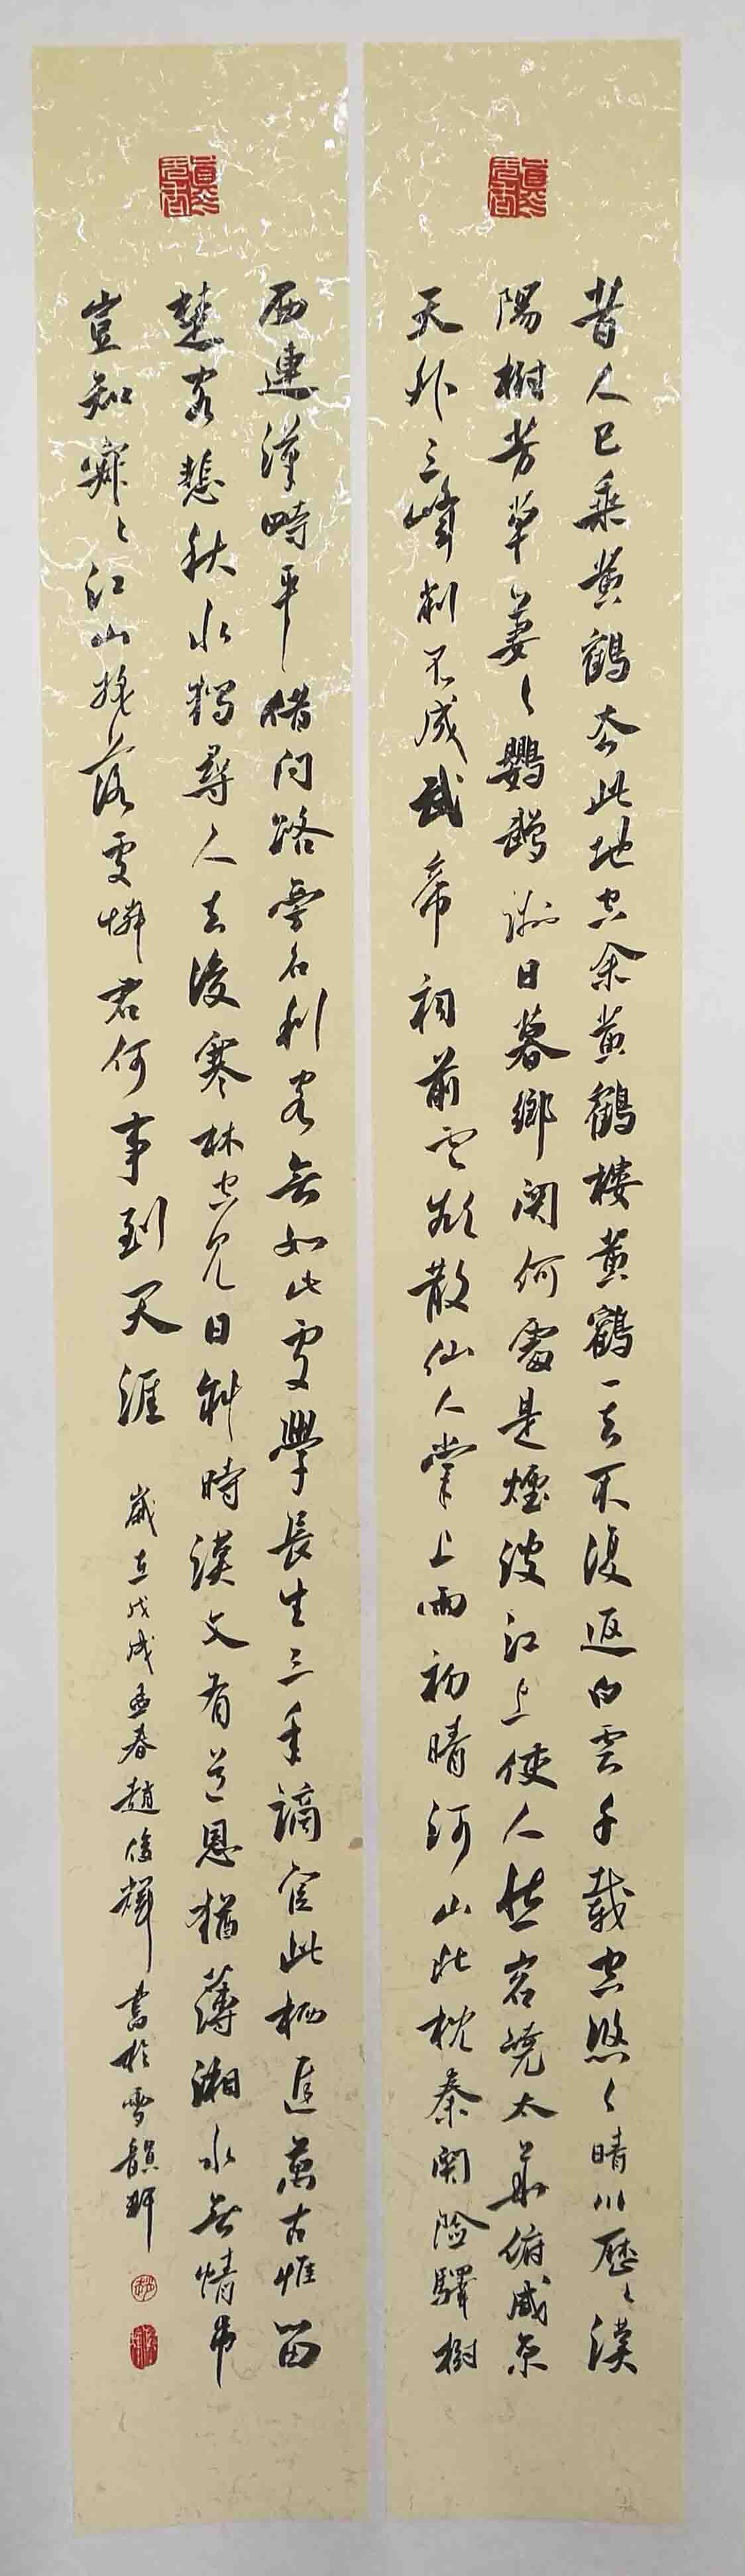 昔人已乘黄鶴去此地空余黄鶴楼黄鶴一去不復返白雲千載空悠〻晴川歷〻漢
陽樹芳草萋〻鸚鵡洲日暮鄉関何處是煙波江上使人愁岧嶢太華俯咸京
天外三峰削不成武帝祠前雲欲散仙人掌上雨初晴河山北枕秦関險驛樹
西連漢畤平借问路旁名利客無如此處學長生三年謫宦此栖遲萬古惟留
楚客悲秋水獨尋人去後寒林空見日斜時漢文有道恩猶薄湘水無情吊
豈知寂〻江山搖落處憐君何事到天涯 歲在戊戌孟春趙俊輝書於雪韻軒